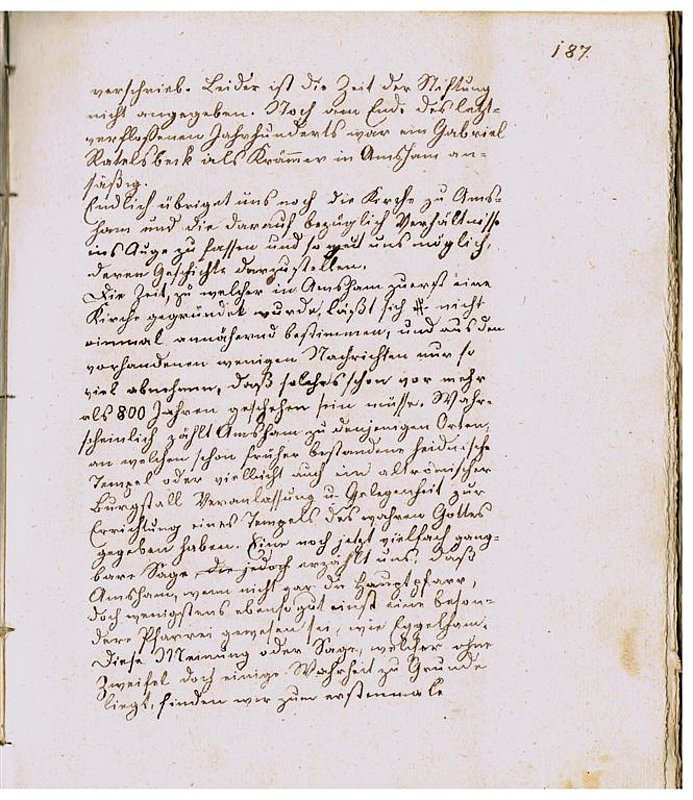 187.
verschrieb. Leider ist die Zeit der Stiftung
nicht angegeben. Noch am Ende des letzt-
verfloßenen Jahrhunderts war ein Gabriel
Ratelsbeck als Krämer in Amsham an-
säßig.
Endlich übriget uns noch die Kirche zu Ams-
ham und die darauf bezüglich Verhältnisse
ins Auge zu fassen und so weit uns möglich,
deren Geschichte darzustellen.
Die Zeit, zu welcher in Amsham zuerst eine
Kirche gegründet wurde, läßt sich nicht
einmal annähernd bestimmen, und aus den
vorhandenen wenigen Nachrichten nur so
viel abnehmen, daß solches schon vor mehr
als 800 Jahren geschehen sein müsse. Wahr-
scheinlich zählt Amsham zu denjenigen Orten,
an welchen schon früher bestandene heidnische
Tempel oder vielleicht auch ein altrömischer
Burgstall Veranlassung u. Gelegenheit zur
Errichtung eines Tempels des wahren Gottes
gegeben haben. Eine noch jetzt vielfach gang-
bare Sage jedoch erzählt uns, daß
Amsham, wenn nicht gar die Hauptpfarr,
doch wenigstens ebenso gut einst eine beson-
dere Pfarrei gewesen sei, wie Eggelham.
Diese Meinung oder Sage, welcher ohne
Zweifel doch einige Wahrheit zu Grunde
liegt, finden wir zum erstenmale